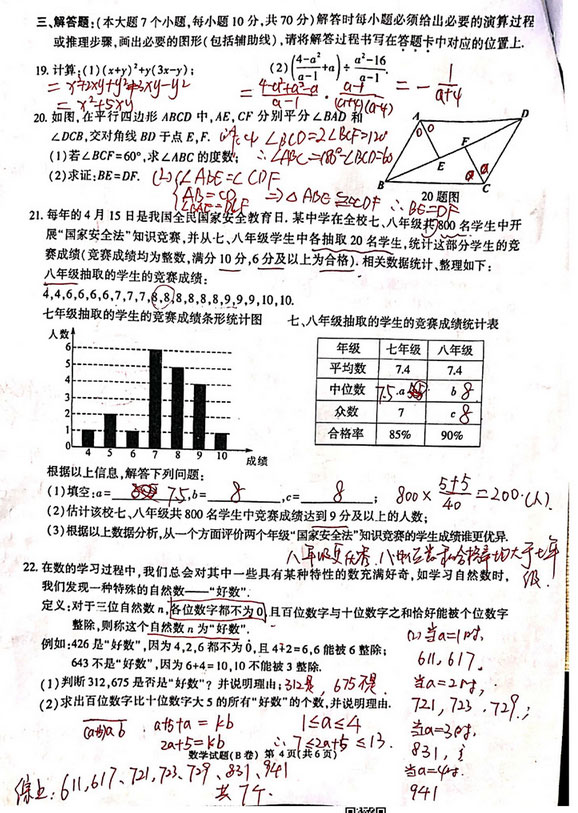 三、解答题:(本大题7个小题,每小题10分,共70分)解答时每小题必须给出必要的演算过程
或推理步骤,画出必要的图形(包括辅助线),请将解答过程书写在答题卡中对应的位置上.
19. 计算:(1)(x+y)²+y(3x-y); (2)((4-a²)/(a-1)+a)÷(a²-16)/(a-1).
= x²+2xy+y²+3xy-y² = (4-a²+a²-a)/(a-1) · (a-1)/((a+4)(a-4)) = -1/(a+4)
= x²+5xy
20. 如图,在平行四边形ABCD中,AE,CF分别平分∠BAD和
∠DCB,交对角线BD于点E,F. ∠BCD=2∠BCF=120°
(1)若∠BCF=60°,求∠ABC的度数; ∴∠ABC=180°-∠BCD=60
(2)求证:BE=DF. (2) ∠ABE=∠CDF
AB=CD ⇒ △ABE≌△CDF ∴BE=DF
∠BAE=∠DCF
A
D
F
E
B
C
20题图
21. 每年的4月15日是我国全民国家安全教育日.某中学在全校七、八年级共800名学生中开
展“国家安全法”知识竞赛,并从七、八年级学生中各抽取20名学生,统计这部分学生的竞
赛成绩(竞赛成绩均为整数,满分10分,6分及以上为合格).相关数据统计、整理如下:
八年级抽取的学生的竞赛成绩:
4,4,6,6,6,6,7,7,7,8,8,8,8,8,8,9,9,9,10,10.
七年级抽取的学生的竞赛成绩条形统计图 七、八年级抽取的学生的竞赛成绩统计表
人数
6
5
4
3
2
1
0
4 5 6 7 8 9 10 成绩
年级 七年级 八年级
平均数 7.4 7.4
中位数 7.5 a b 8
众数 7 c 8
合格率 85% 90%
根据以上信息,解答下列问题:
(1)填空:a= 7.5,b= 8 ,c= 8 ; 800×(5+5)/40=200(人)
(2)估计该校七、八年级共800名学生中竞赛成绩达到9分及以上的人数;
(3)根据以上数据分析,从一个方面评价两个年级“国家安全法”知识竞赛的学生成绩谁更优异.
八年级更优秀.八中位数和合格率均大于七年
级.
22. 在数的学习过程中,我们总会对其中一些具有某种特性的数充满好奇,如学习自然数时,
我们发现一种特殊的自然数——“好数”.
定义:对于三位自然数n,各位数字都不为0,且百位数字与十位数字之和恰好能被个位数字
整除,则称这个自然数n为“好数”.
例如:426是“好数”,因为4,2,6都不为0,且4+2=6,6能被6整除;
643不是“好数”,因为6+4=10,10不能被3整除.
(1)判断312,675是否是“好数”?并说明理由; 312是,675不是.
(2)求出百位数字比十位数字大5的所有“好数”的个数,并说明理由.
(a+5)ab a+5+a=kb 1≤a≤4
2a+5=kb ∴7≤2a+5≤13.
(2)当a=1时,
611,617.
当a=2时,
721,723,729;
当a=3时,
831,;
当a=4时.
941
数学试题(B卷) 第4页(共6页)
综上:611,617、721,723、729、831、941
共7个.